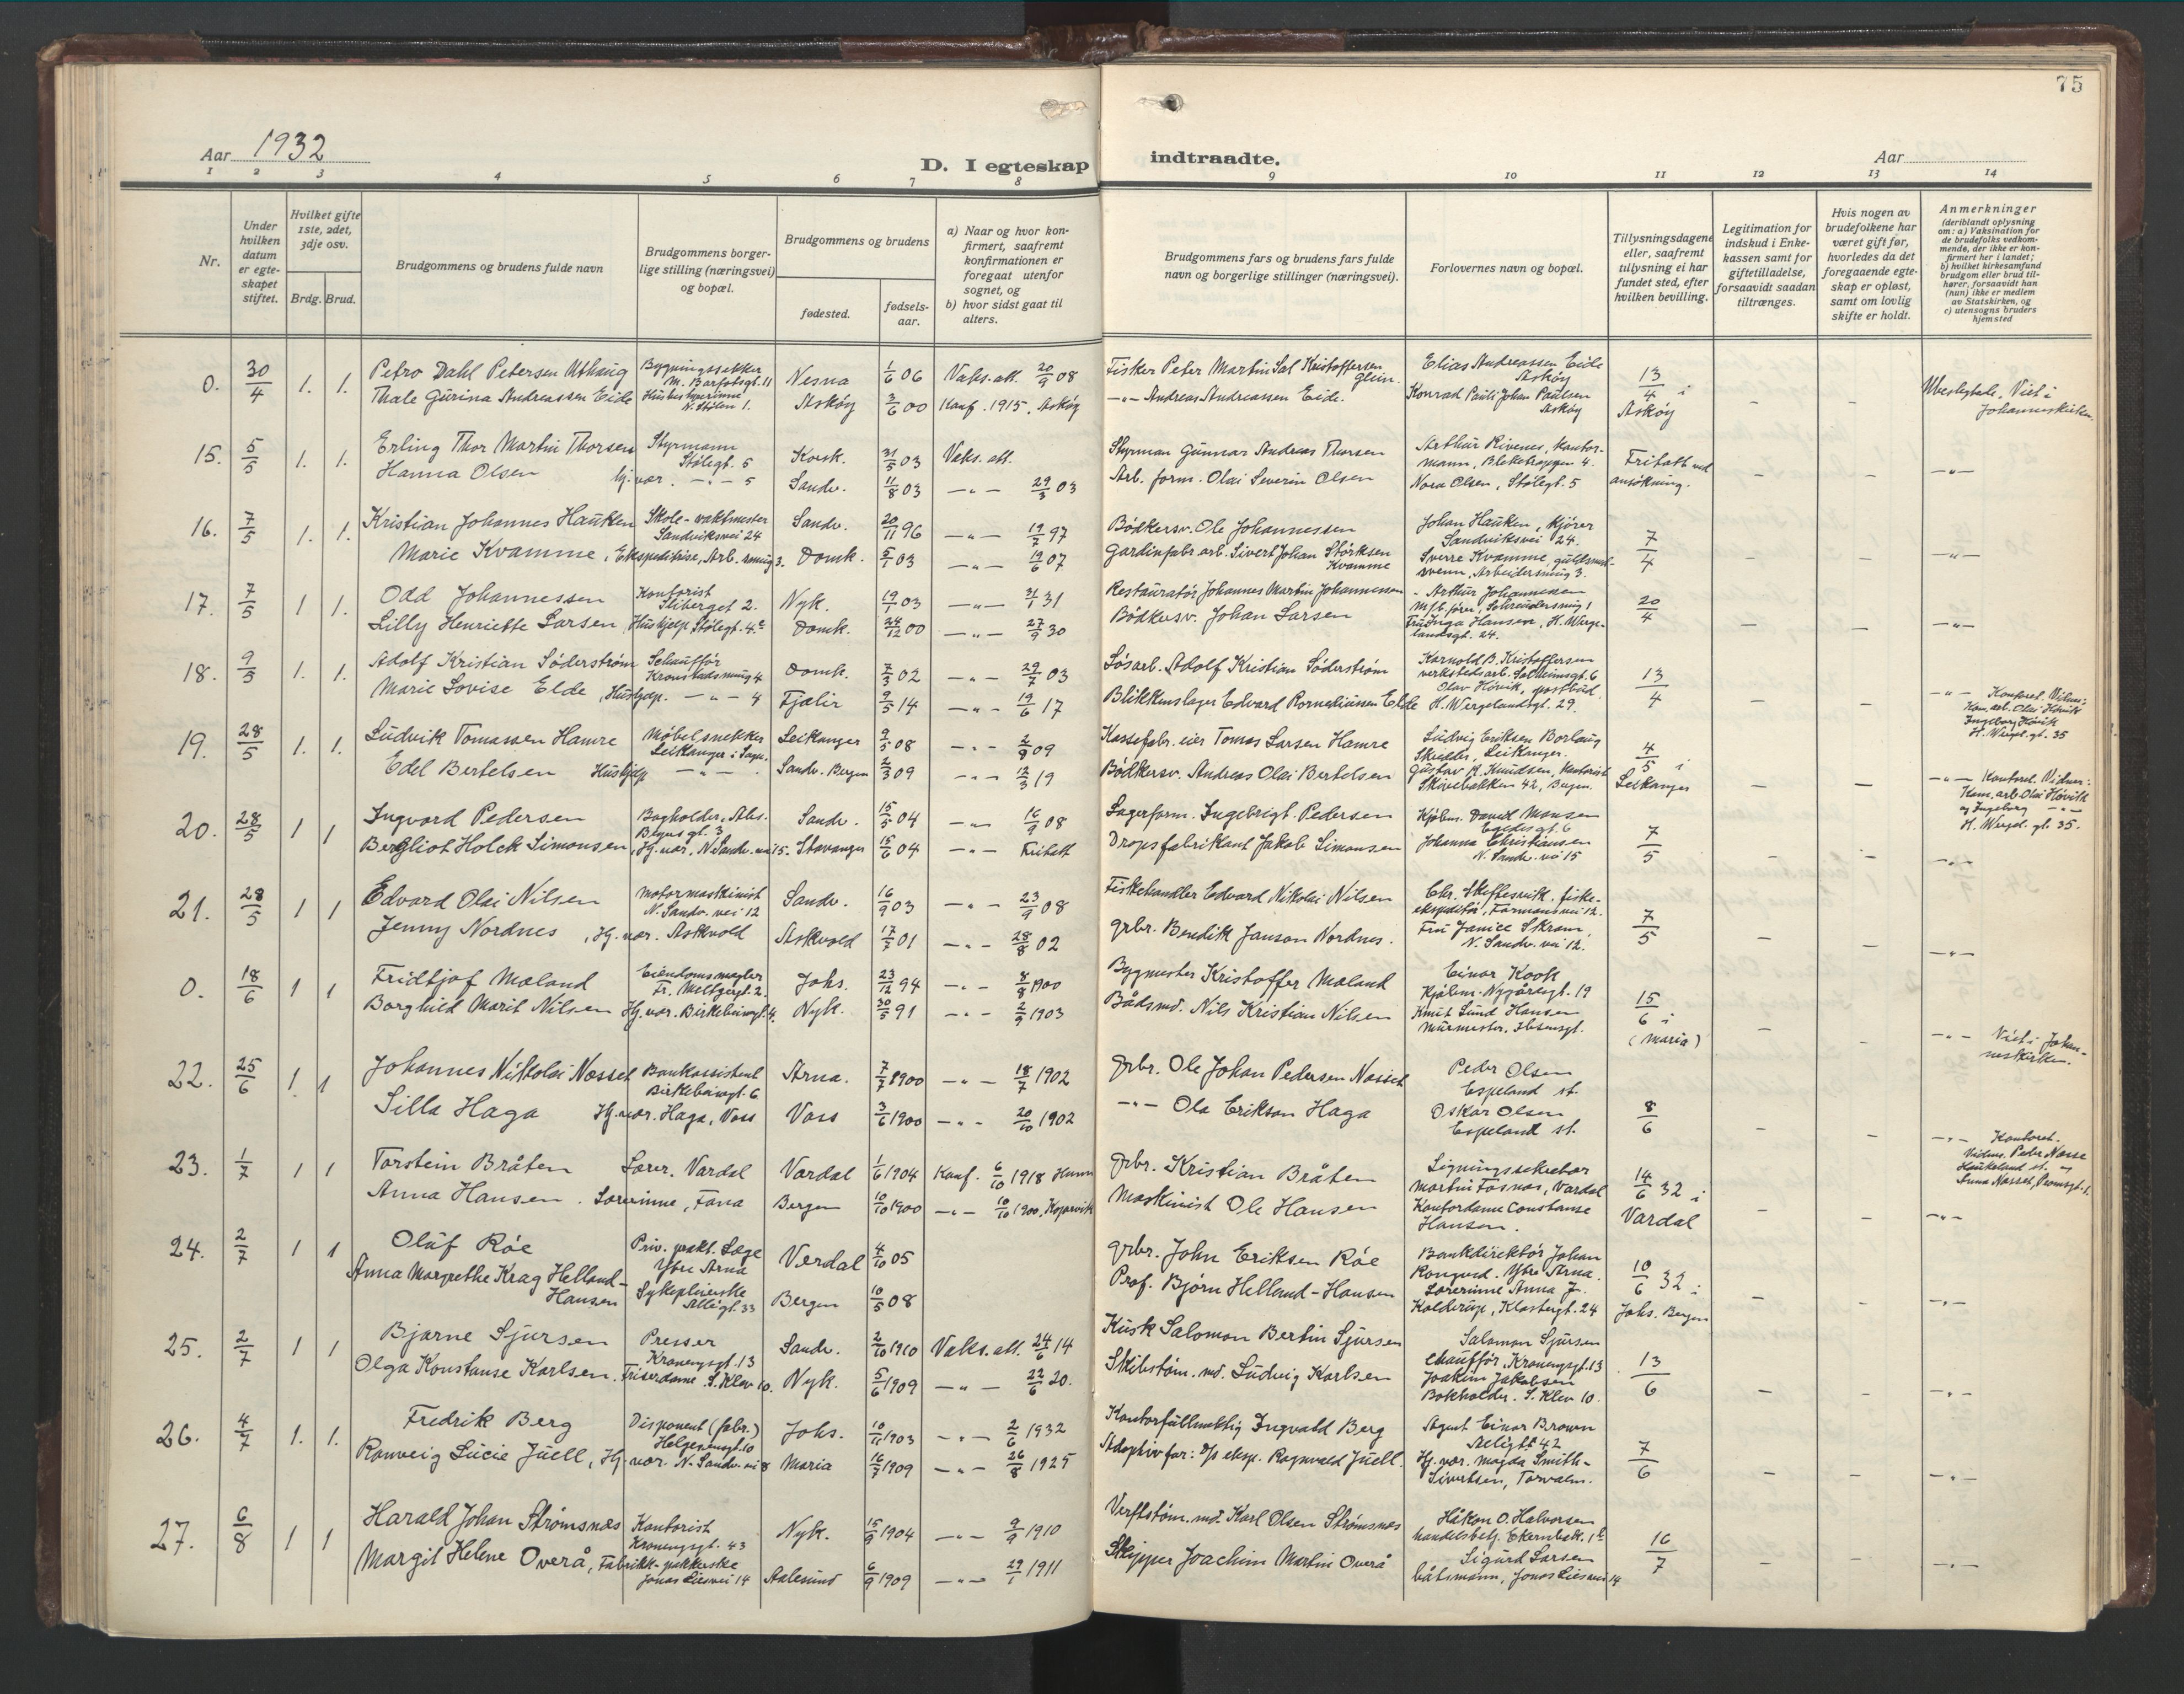 75
Aar 1932
D. I egteskap indtraadte.
Aar
1 2 3 4 5 6 7 8 9 10 11 12 13 14
Nr.
Under hvilken datum er egteskapet stiftet.
Hvilket gifte 1ste, 2det, 3dje osv.
Brdg. Brud.
Brudgommens og brudens fulde navn
Brudgommens borgerlige stilling (næringsvei) og bopæl.
Brudgommens og brudens
fødested.
fødselsaar.
a) Naar og hvor konfirmert, saafremt konfirmationen er foregaat utenfor sognet, og
b) hvor sidst gaat til alters.
Brudgommens fars og brudens fars fulde navn og borgerlige stillinger (næringsvei).
Forlovernes navn og bopæl.
Tillysningsdagene eller, saafremt tillysning ei har fundet sted, efter hvilken bevilling.
Legitimation for indskud i Enkekassen samt for giftetilladelse, forsaavidt saadan tiltrænges.
Hvis nogen av brudefolkene har været gift før, hvorledes da det foregaaende egteskap er opløst, samt om lovlig skifte er holdt.
Anmerkninger
(deriblandt oplysning om: a) Vaksination for de brudefolks vedkommende, der ikke er konfirmert her i landet;
b) hvilket kirkesamfund brudgom eller brud tilhører, forsaavidt han (hun) ikke er medlem av Statskirken, og
c) utensogns bruders hjemsted
0. 30/4 1. 1. Petro Dahl Petersen Uthaug Bygningssnekker M. Barfotsgt. 11 Nesna 1/6 06 Vaks. att. 20/9 08 Fisker Peter Martin Sal Kristoffersen Elias Andreassen Eide Askøy 13/4 i Askøy
Thale Gurina Andreassen Eide N. Stølen 1. Askøy 3/6 00 Konf. 1915, Askøy -"- Andreas Andreassen Eide. Konrad Pauli Johan Paulsen Askøy Viet i Johanneskirken
15. 5/5 1. 1. Erling Thor Martin Thorsen Styrmann Stølegt. 5 Korsk. 31/5 03 Vaks. att. Styrman Gunnar Andreas Thorsen Arthur Rivenes, kontormann, Bleketrappen 4. Fritatt ved ansøkning.
Hanna Olsen hj.vær. -"- 5 Sandv. 11/8 03 -"- 29/3 03 Arb. form. Olai Severin Olsen Nora Olsen, Stølegt. 5 -"-
16. 7/5 1. 1. Kristian Johannes Hauken Skole-vaktmester Sandviksvei 24 Sandv. 20/11 96 -"- 19/7 97 Bødkersv. Ole Johannessen Johan Hauken, kjører Sandviksvei 24. 7/4
Marie Kvamme, Ekspeditrise, Arb. smug 3. Domk. 5/1 03 -"- 19/6 07 Gardinfabr. arb. Sivert Johan Størksen Kvamme Sverre Kvamme, guldsmedsvenn, Arbeidersmug 3. -"-
17. 7/5 1 1. Odd Johannessen Kontorist Sliberget 2. Nyk. 19/1 03 -"- 31/1 31 Restauratør Johannes Martin Johannessen Arthur Johannessen M/b. fører, Schreudersmug 1 20/4
Lilly Henriette Larsen Hushjelp Stølegt. 4c Domk. 24/12 00 -"- 27/9 30 Bødkersv. Johan Larsen Fru Inga Hansen, H. Wergelandsgt. 24. -"-
18. 9/5 1. 1. Adolf Kristian Söderström Schauffør Kronstadsmug 4 Domk. 7/3 02 -"- 29/7 03 Løsarb. Adolf Kristian Söderström Karnold B. Kristoffersen verkstedsarb. Solheimsgt. 6 13/4
Marie Lovise Elde, Hushjelp. -"- 4 Fjaler 9/5 14 -"- 19/6 17 Blikkenslager Edvard Korneliussen Elde Olav Høvik, postbud, H. Wergelandsgt. 29. -"- Kontoret. Vidner: Kom. arb. Olai Høvik Ingeborg Høvik H. Wergel. gt. 35
19. 28/5 1. 1. Ludvik Tomassen Hamre Møbelsnekker Leikanger i Sogn. Leikanger 9/5 08 -"- 2/9 09 Kassefabr. eier Tomas Larsen Hamre Ludvig Eriksen Borlaug Skredder, Leikanger. 4/5 i Leikanger
Edel Bertelsen Hushjelp -"- Sandv. Bergen 2/3 09 -"- 12/3 19 Bødkersv. Andreas Olai Bertelsen Gustav A. Knudsen, kontorist Skivebakken 42, Bergen. -"- Kontoret. Vidner: Kom. arb. Olai Høvik og Ingeborg -"- H. Wergel. gt. 35.
20. 28/5 1 1 Ingvard Pedersen Bogholder, Abs. Beyers gt. 3 Sandv. 15/5 04 -"- 16/9 08 Lagerform. Ingebrigt Pedersen Kjøbm. David Monsen Egedes gt. 6 7/5
Bergliot Holck Simonsen, Hj. vær, N. Sandv. vei 15. Stavanger 15/6 04 -"- Fritatt Dropsfabrikant Jakob Simonsen Johanna Christiansen N. Sandv. vei 15 -"-
21. 28/5 1 1 Edvard Olai Nilsen Motormaskinist N. Sandv. vei 12 Sandv. 16/9 03 -"- 23/9 08 Fiskehandler Edvard Nikolai Nilsen Chr. Skeffesvik, fiskeekspeditør, Formannsvei 12. 7/5
Jenny Nordnes, Hj. vær. Askvold Askvold 17/7 01 -"- 28/8 02 Grbr. Bendik Janson Nordnes. Fru Janice Skram, N. Sandv. vei 12. -"-
0. 18/6 1 1 Fridtjof Mæland Eiendomsmægler Fr. Meltzersgt. 2. Johs. 23/12 94 -"- 8/8 1900 Bygmester Kristoffer Mæland Einar Kook Kjøbm. Nygårdsgt. 19 15/6 i (Maria)
Borghild Marit Nilsen Hj. vær. Birkebeinergt. 4. Nyk. 30/5 91 -"- 2/9 1903 Bådsmd. Nils Kristian Nilsen Knut Lund Hansen Murmester, Ibsensgt. -"- Viet i Johanneskirken.
22. 25/6 1. 1 Johannes Nikolai Nosset Bankassistent Birkebeinergt. 6 Arna. 7/7 1900 -"- 18/7 1902 Grbr. Ole Johan Pedersen Nosset Peder Olsen Espeland st. 8/6
Silla Haga Hj. vær. Haga, Voss Voss 3/6 1900 -"- 20/10 1902 -"- Ola Erikson Haga Oskar Olsen Espeland st. -"- Kontoret. Vidner. Peder Nosse Haukeland st. og Anna Nosset
23. 1/7 1 1 Torstein Bråten Lærer. Vardal Vardal 1/6 1904 Konf. 6/10 1918 Hunn Grbr. Kristian Bråten Ligningssekretær Martin Fosnæs, Vardal 14/6 32 i Vardal
Anna Hansen. Lærerinne, Fana Bergen 10/10 1900 -"- 10/10 1900, Kopervik Maskinist Ole Hansen Kontordame Constanse Hansen. -"-
24. 2/7 1 1 Oluf Røe Priv. prakt. Læge Ytre Arna Verdal 4/10 05 Grbr. John Eriksen Røe Bankdirektør Johan Rongved. Ytre Arna. 10/6 32 i Johs. Bergen
Anna Margrethe Krag Helland-Hansen Sykepleierske Allégt. 33 Bergen 10/5 08 Prof. Bjørn Helland-Hansen Lærerinne Anna J. Kolderup, Klostergt. 24 -"-
25. 2/7 1 1 Bjarne Sjursen Presser Kroneng​sgt. 13 Sandv. 2/10 1910 Vaks. att. 24/6 14 Kusk Salomon Bertin Sjursen Salomon Sjursen Chauffør, Krohnengsgt. 13 13/6
Olga Konstanse Karlsen. Friserdame. S. Klev 10. Nyk. 5/6 1909 -"- 22/6 20. Skibstøm. md. Ludvig Karlsen Joakim Jakobsen Bokholder. S. Klev 10. -"-
26. 4/7 1. 1. Fredrik Berg Disponent (fabr.) Helgesensgt. 10 Johs. 10/11 1903 -"- 2/6 1932 Kontorfullmektig Ingvald Berg Agent Einar Brown Allégt. 42 7/6
Ranveig Lucie Juell, Hj. vær. N. Sandv. vei 8 Maria 16/7 1909 -"- 26/8 1925 Adoptivfar: D/s eksp. Ragnvald Juell. Hj. vær. Magda Smith-Sivertsen, Torvalm. -"-
27. 6/8 1 1 Harald Johan Strømsnæs Kontorist Kronengsgt. 43 Nyk. 15/9 1904 -"- 9/9 1910 Verftstøm. md. Karl Olsen Strømsnæs Håkon O. Halvorsen handelsbetj. 16/7
Margit Helene Overå, Fabrikk-pakkerske Jonas Liesvei 14 Aalesund 6/9 1909 -"- 29/1 1911 Skipper Joachim Martin Overå Sigurd Larsen båtsmann, Jonas Liesvei 14 -"-